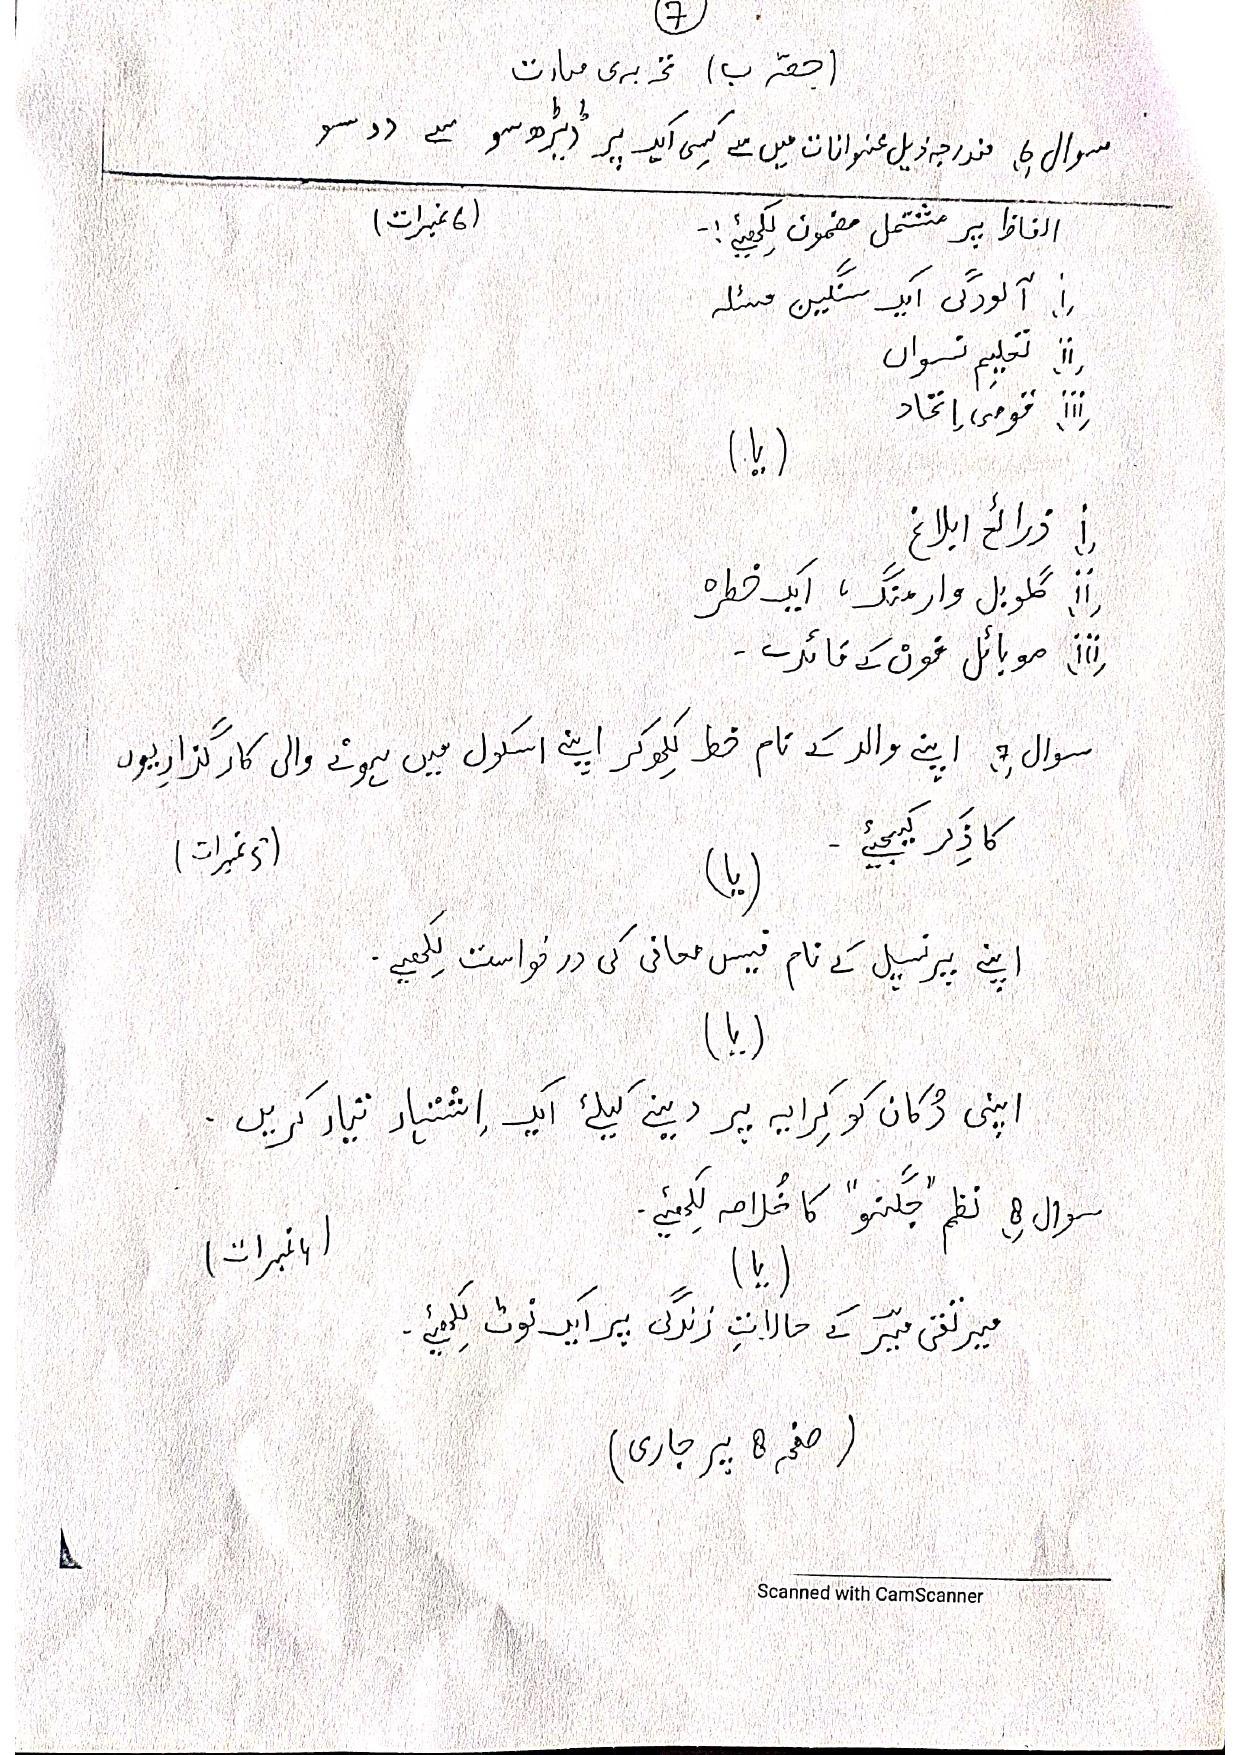 7
(حصّہ ب) تحریری مہارت
سوال 6 مندرجہ ذیل عنوانات میں سے کِسی ایک پر ڈیڑھ سو سے دو سو
الفاظ پر مشتمل مضمون لِکھیئے :-
(6 نمبرات)
i آلودگی ایک سنگین مسئلہ
ii تعلیمِ نسواں
iii قومی اِتحاد
(یا)
i ذرائع ابلاغ
ii گلوبل وارمنگ، ایک خطرہ
iii موبائل فون کے فائدے -
سوال 7 اپنے والد کے نام خط لِکھ کر اپنے اسکول میں ہونے والی کارگذاریوں
کا ذِکر کیجیئے -
(5 نمبرات)
(یا)
اپنے پرنسپل کے نام فیس معافی کی درخواست لِکھیے -
(یا)
اپنی دُکان کو کِرایہ پر دینے کیلئے ایک اِشتہار تیار کریں -
سوال 8 نظم "جگنو" کا خُلاصہ لِکھیئے -
(4 نمبرات)
(یا)
میر تقی میرؔ کے حالاتِ زندگی پر ایک نوٹ لِکھیئے -
(صفحہ 8 پر جاری)
Scanned with CamScanner